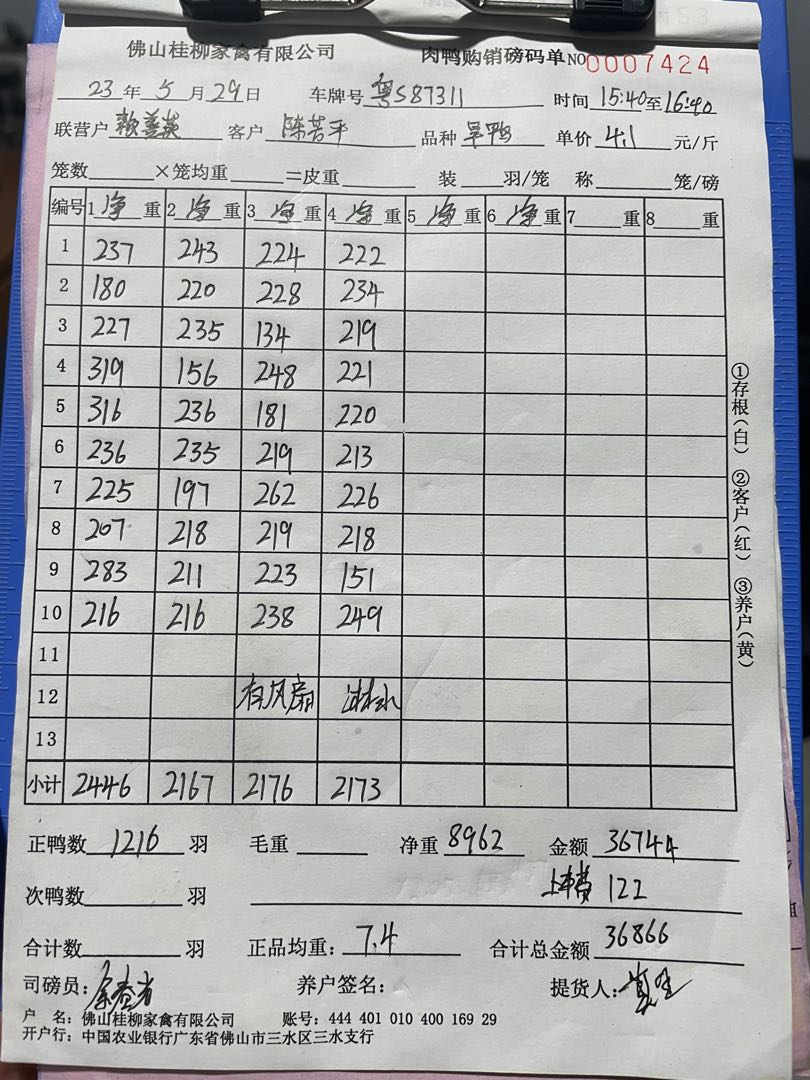 佛山桂柳家禽有限公司 肉鸭购销磅码单 NO 0007424
23 年 5 月 29 日 车牌号 粤S87311 时间 15:40 至 16:40
联营户 赖善英 客户 陈芳平 品种 旱鸭 单价 4.1 元/斤
笼数 ×笼均重 =皮重 装 羽/笼 称 笼/磅
编号 1 净 重 2 净 重 3 净 重 4 净 重 5 净 重 6 净 重 7 重 8 重
1 237 243 224 222
2 180 220 228 234
3 227 235 134 219
4 319 156 248 221
5 316 236 181 220
6 236 235 219 213
7 225 197 262 226
8 207 218 219 218
9 283 211 223 151
10 216 216 238 249
11
12 有风扇 淋水
13
小计 2446 2167 2176 2173
①存根(白) ②客户(红) ③养户(黄)
正鸭数 1216 羽 毛重 净重 8962 金额 36744
次鸭数 羽 上车费 122
合计数 羽 正品均重: 7.4 合计总金额 36866
司磅员: 养户签名: 提货人:
户 名: 佛山桂柳家禽有限公司 账号: 444 401 010 400 169 29
开户行: 中国农业银行广东省佛山市三水区三水支行